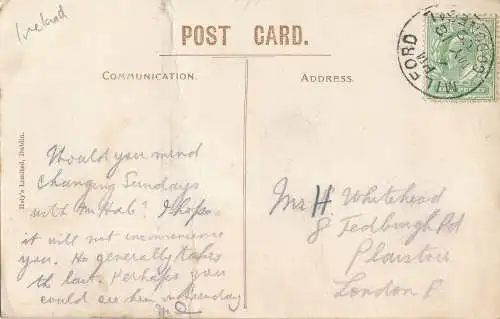 Ireland
POST CARD.
COMMUNICATION.
ADDRESS.
FORD
Hely's Limited, Dublin.
Would you mind
changing Sundays
with Mr Hab? I hope
it will not inconvenience
you. He generally takes
the last. Perhaps you
could see him on Sunday
Mr H Whitehead
8 Tedburgh Rd
Plaistow
London E